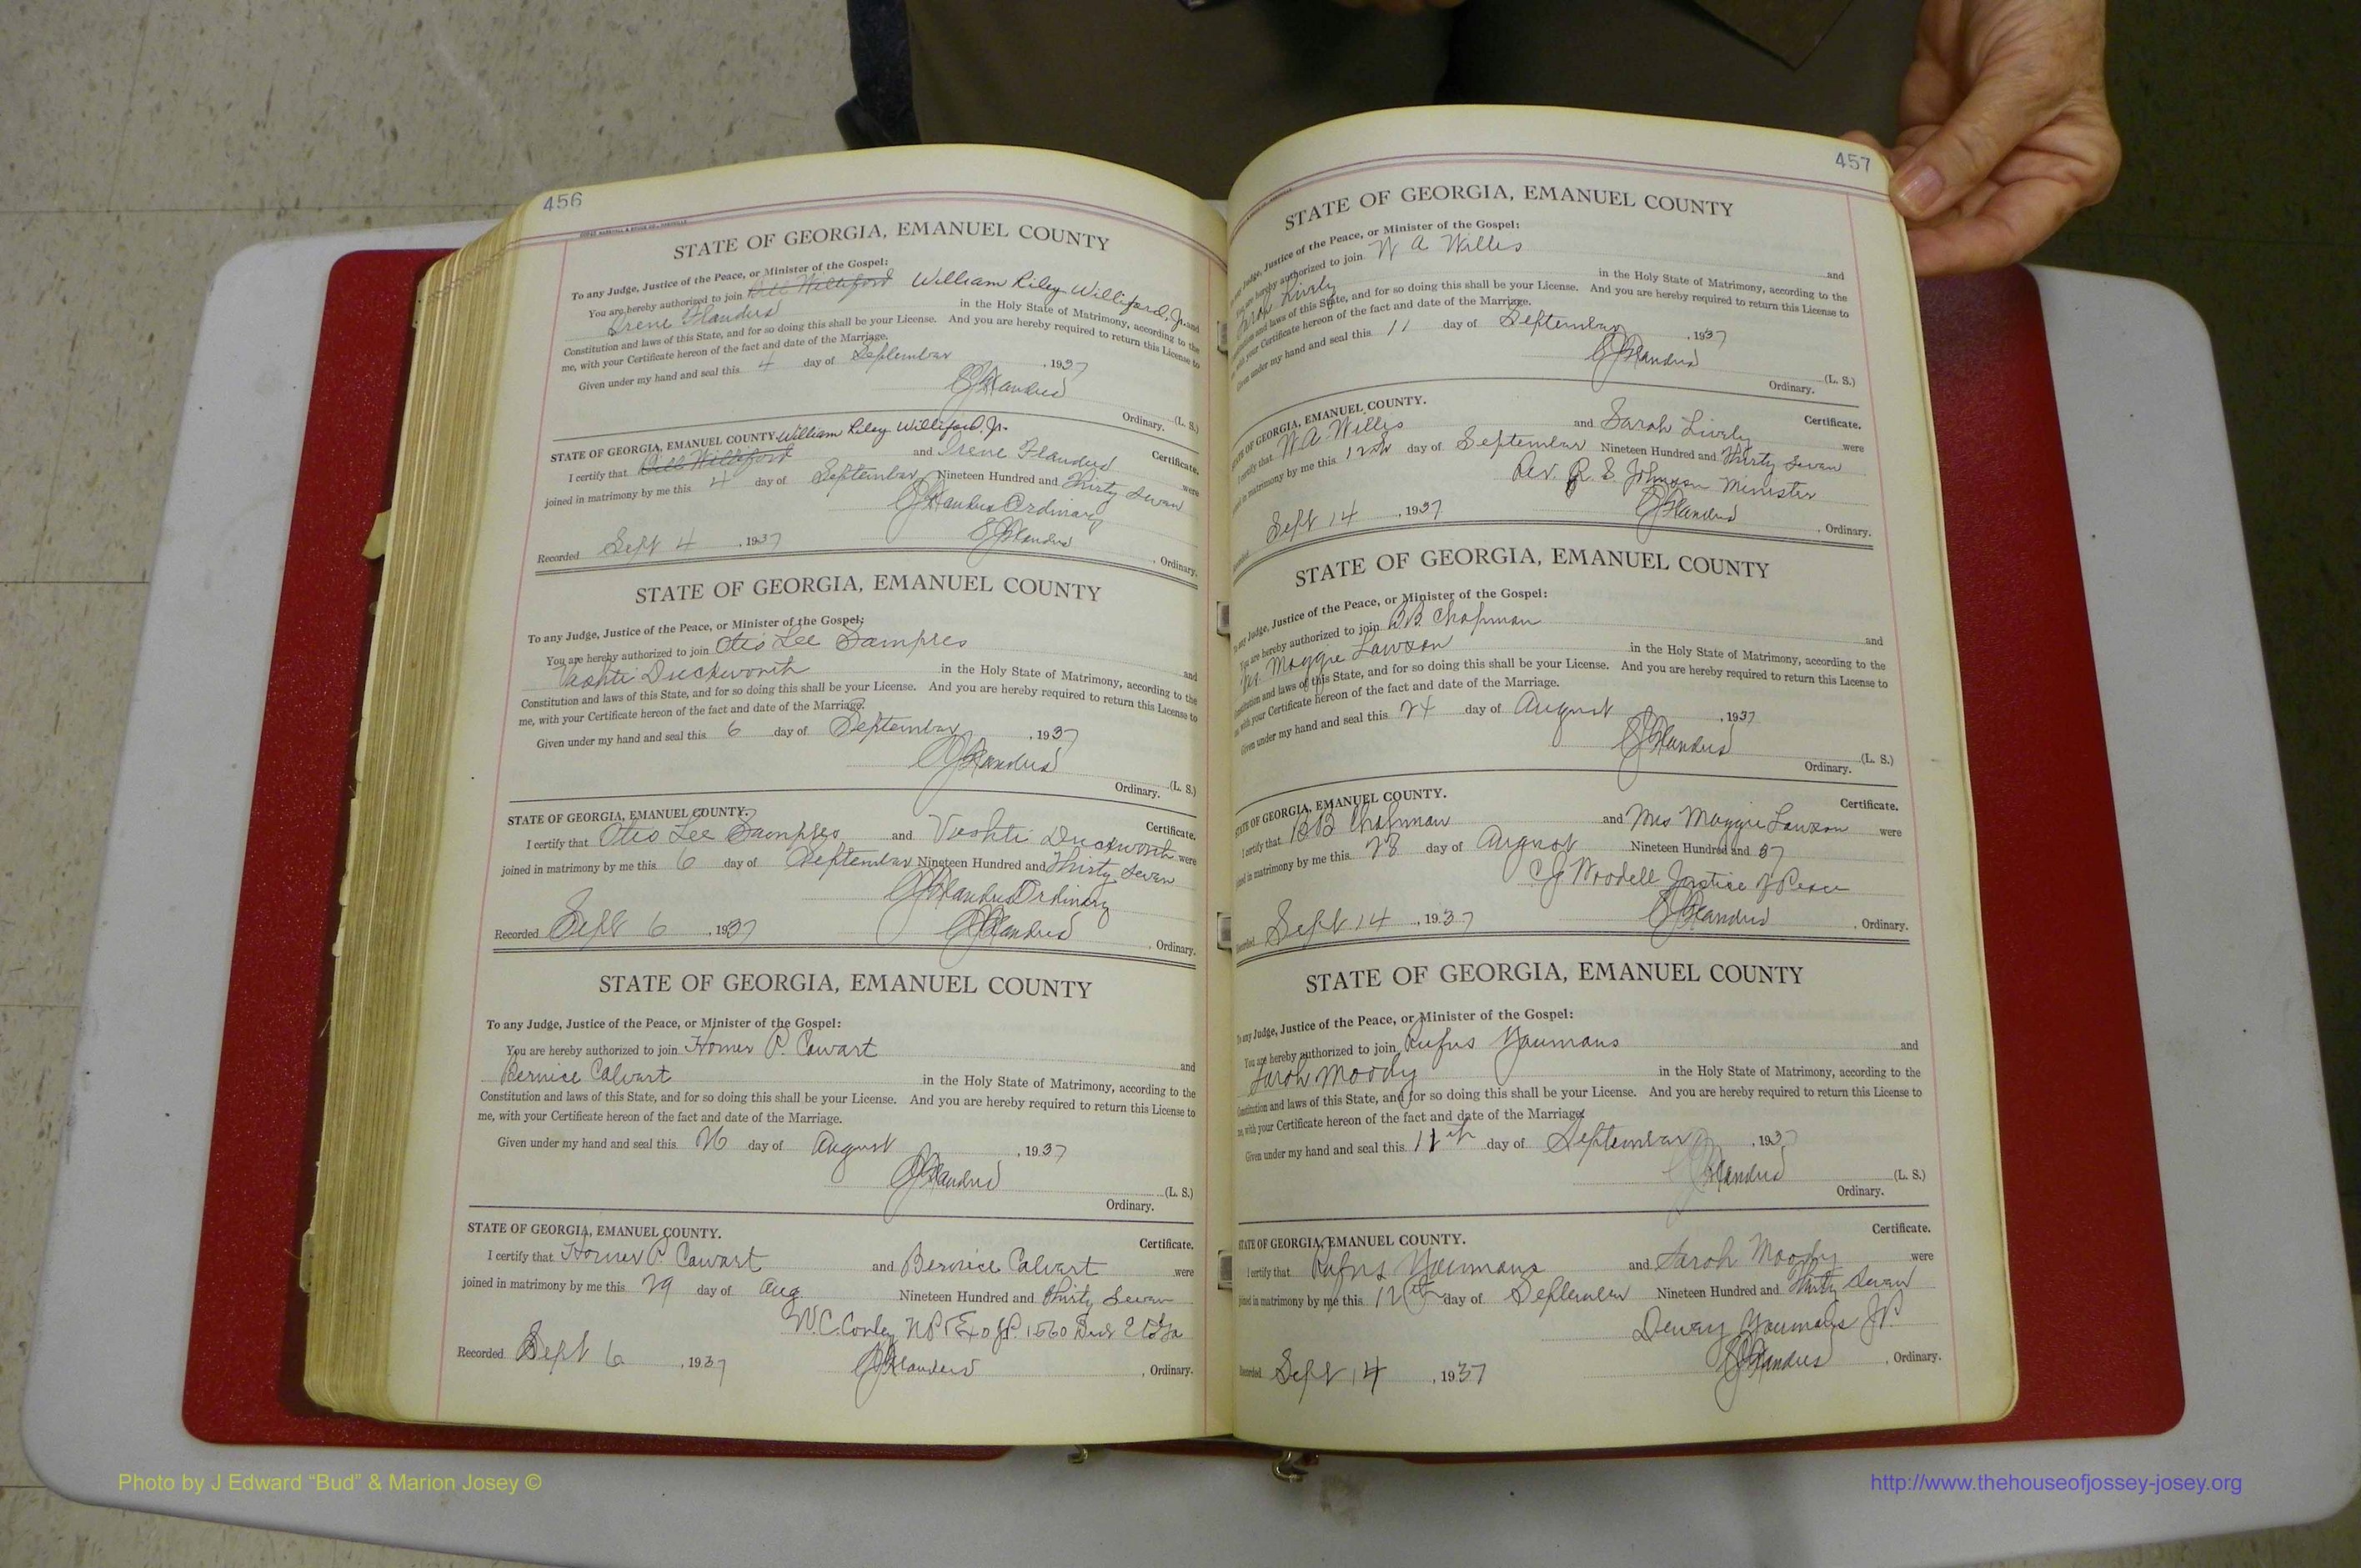 456
STATE OF GEORGIA, EMANUEL COUNTY
To any Judge, Justice of the Peace, or Minister of the Gospel:
You are hereby authorized to join Bill Williford William Riley Williford, Jr. and
Irene Flanders in the Holy State of Matrimony, according to the
Constitution and laws of this State, and for so doing this shall be your License. And you are hereby required to return this License to
me, with your Certificate hereon of the fact and date of the Marriage.
Given under my hand and seal this 4 day of September, 1937
Flanders (L. S.)
Ordinary.
STATE OF GEORGIA, EMANUEL COUNTY. William Riley Williford, Jr. Certificate.
I certify that Bill Williford and Irene Flanders were
joined in matrimony by me this 4 day of September Nineteen Hundred and Thirty Seven
Flanders Ordinary
Recorded Sept 4, 1937 Flanders, Ordinary.
STATE OF GEORGIA, EMANUEL COUNTY
To any Judge, Justice of the Peace, or Minister of the Gospel:
You are hereby authorized to join Otis Lee Samples and
Vashti Duckworth in the Holy State of Matrimony, according to the
Constitution and laws of this State, and for so doing this shall be your License. And you are hereby required to return this License to
me, with your Certificate hereon of the fact and date of the Marriage.
Given under my hand and seal this 6 day of September, 1937
Flanders (L. S.)
Ordinary.
STATE OF GEORGIA, EMANUEL COUNTY. Certificate.
I certify that Otis Lee Samples and Vashti Duckworth were
joined in matrimony by me this 6 day of September Nineteen Hundred and Thirty Seven
Flanders Ordinary
Recorded Sept 6, 1937 Flanders, Ordinary.
STATE OF GEORGIA, EMANUEL COUNTY
To any Judge, Justice of the Peace, or Minister of the Gospel:
You are hereby authorized to join Homer P. Cowart and
Bernice Calvart in the Holy State of Matrimony, according to the
Constitution and laws of this State, and for so doing this shall be your License. And you are hereby required to return this License to
me, with your Certificate hereon of the fact and date of the Marriage.
Given under my hand and seal this 26 day of August, 1937
Flanders (L. S.)
Ordinary.
STATE OF GEORGIA, EMANUEL COUNTY. Certificate.
I certify that Homer P. Cowart and Bernice Calvart were
joined in matrimony by me this 29 day of Aug. Nineteen Hundred and Thirty Seven
W.C. Conley NP & Ex o JP. 1560
Recorded Sept 6, 1937 Flanders, Ordinary.
457
STATE OF GEORGIA, EMANUEL COUNTY
Judge, Justice of the Peace, or Minister of the Gospel:
are hereby authorized to join W A Willis and
Sarah Lively in the Holy State of Matrimony, according to the
and laws of this State, and for so doing this shall be your License. And you are hereby required to return this License to
with your Certificate hereon of the fact and date of the Marriage.
Given under my hand and seal this 11 day of September, 1937
Flanders (L. S.)
Ordinary.
STATE OF GEORGIA, EMANUEL COUNTY. Certificate.
certify that W A Willis and Sarah Lively were
in matrimony by me this 12th day of September Nineteen Hundred and Thirty Seven
Rev. R. S. Johnson Minister
Sept 14, 1937 Flanders, Ordinary.
STATE OF GEORGIA, EMANUEL COUNTY
any Judge, Justice of the Peace, or Minister of the Gospel:
You are hereby authorized to join B.B. Chapman and
Mrs. Maggie Lawson in the Holy State of Matrimony, according to the
Constitution and laws of this State, and for so doing this shall be your License. And you are hereby required to return this License to
with your Certificate hereon of the fact and date of the Marriage.
Given under my hand and seal this 24 day of August, 1937
Flanders (L. S.)
Ordinary.
STATE OF GEORGIA, EMANUEL COUNTY. Certificate.
I certify that B B Chapman and Mrs Maggie Lawson were
joined in matrimony by me this 28 day of August Nineteen Hundred and 37
Woodell Justice of Peace
Recorded Sept 14, 1937 Flanders, Ordinary.
STATE OF GEORGIA, EMANUEL COUNTY
To any Judge, Justice of the Peace, or Minister of the Gospel:
You are hereby authorized to join Rufus Youmans and
Sarah Moody in the Holy State of Matrimony, according to the
Constitution and laws of this State, and for so doing this shall be your License. And you are hereby required to return this License to
me, with your Certificate hereon of the fact and date of the Marriage.
Given under my hand and seal this 11th day of September, 1937
Flanders (L. S.)
Ordinary.
STATE OF GEORGIA, EMANUEL COUNTY. Certificate.
I certify that Rufus Youmans and Sarah Moody were
joined in matrimony by me this 12th day of September Nineteen Hundred and Thirty Seven
Dewey Youmans JP.
Recorded Sept 14, 1937 Flanders, Ordinary.
Photo by J Edward “Bud” & Marion Josey ©
http://www.thehouseofjossey-josey.org